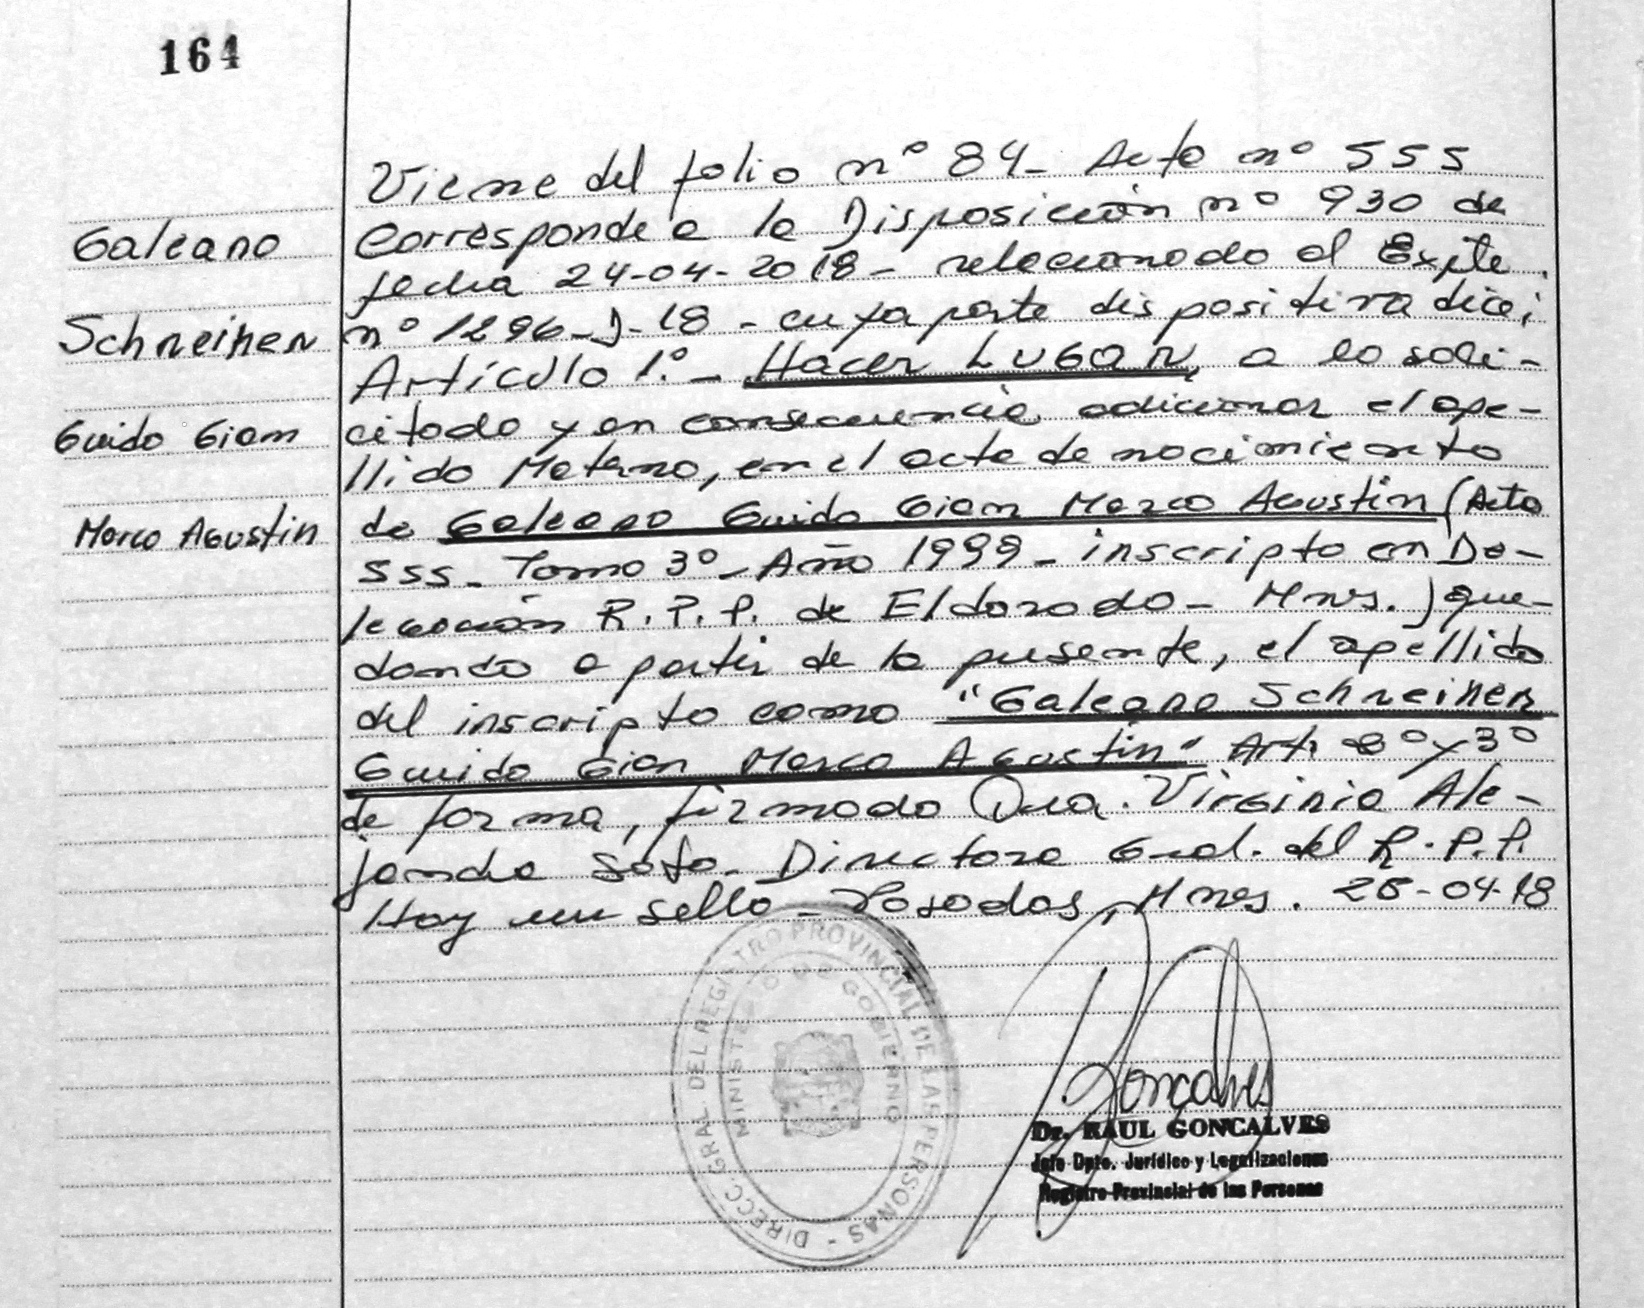 164
Galeano
Schreiner
Guido Gian
Marco Agustin
Viene del folio nº 84_ Acta nº 555
Corresponde a la Disposición nº 930 de
fecha 24-04-2018_ relacionado al Expte.
nº 1296-J-18 - cuya parte dispositiva dice;
Artículo 1º_ Hacer LUGAR, a lo soli-
citado y en consecuencia adicionar el ape-
llido Materno, en el acta de nacimiento
de Galeano Guido Gian Marco Agustin (Acta
555_ Tomo 3º_ Año 1999_ inscripto en De-
legación R.P.P. de Eldorado_ Mnes.) que-
dando a partir de la presente, el apellido
del inscripto como "Galeano Schreiner
Guido Gian Marco Agustin" Art. 2º y 3º
de forma, firmado Dra. Virginia Ale-
jandra Soto_ Directora Gral. del R.P.P.
Hay un sello_ Posadas, Mnes. 26-04-18
DIRECC. GRAL. DEL REGISTRO PROVINCIAL DE LAS PERSONAS -
MINISTERIO DE GOBIERNO
Gonçalves
Dr. RAUL GONCALVES
Jefe Dpto. Jurídico y Legalizaciones
Registro Provincial de las Personas